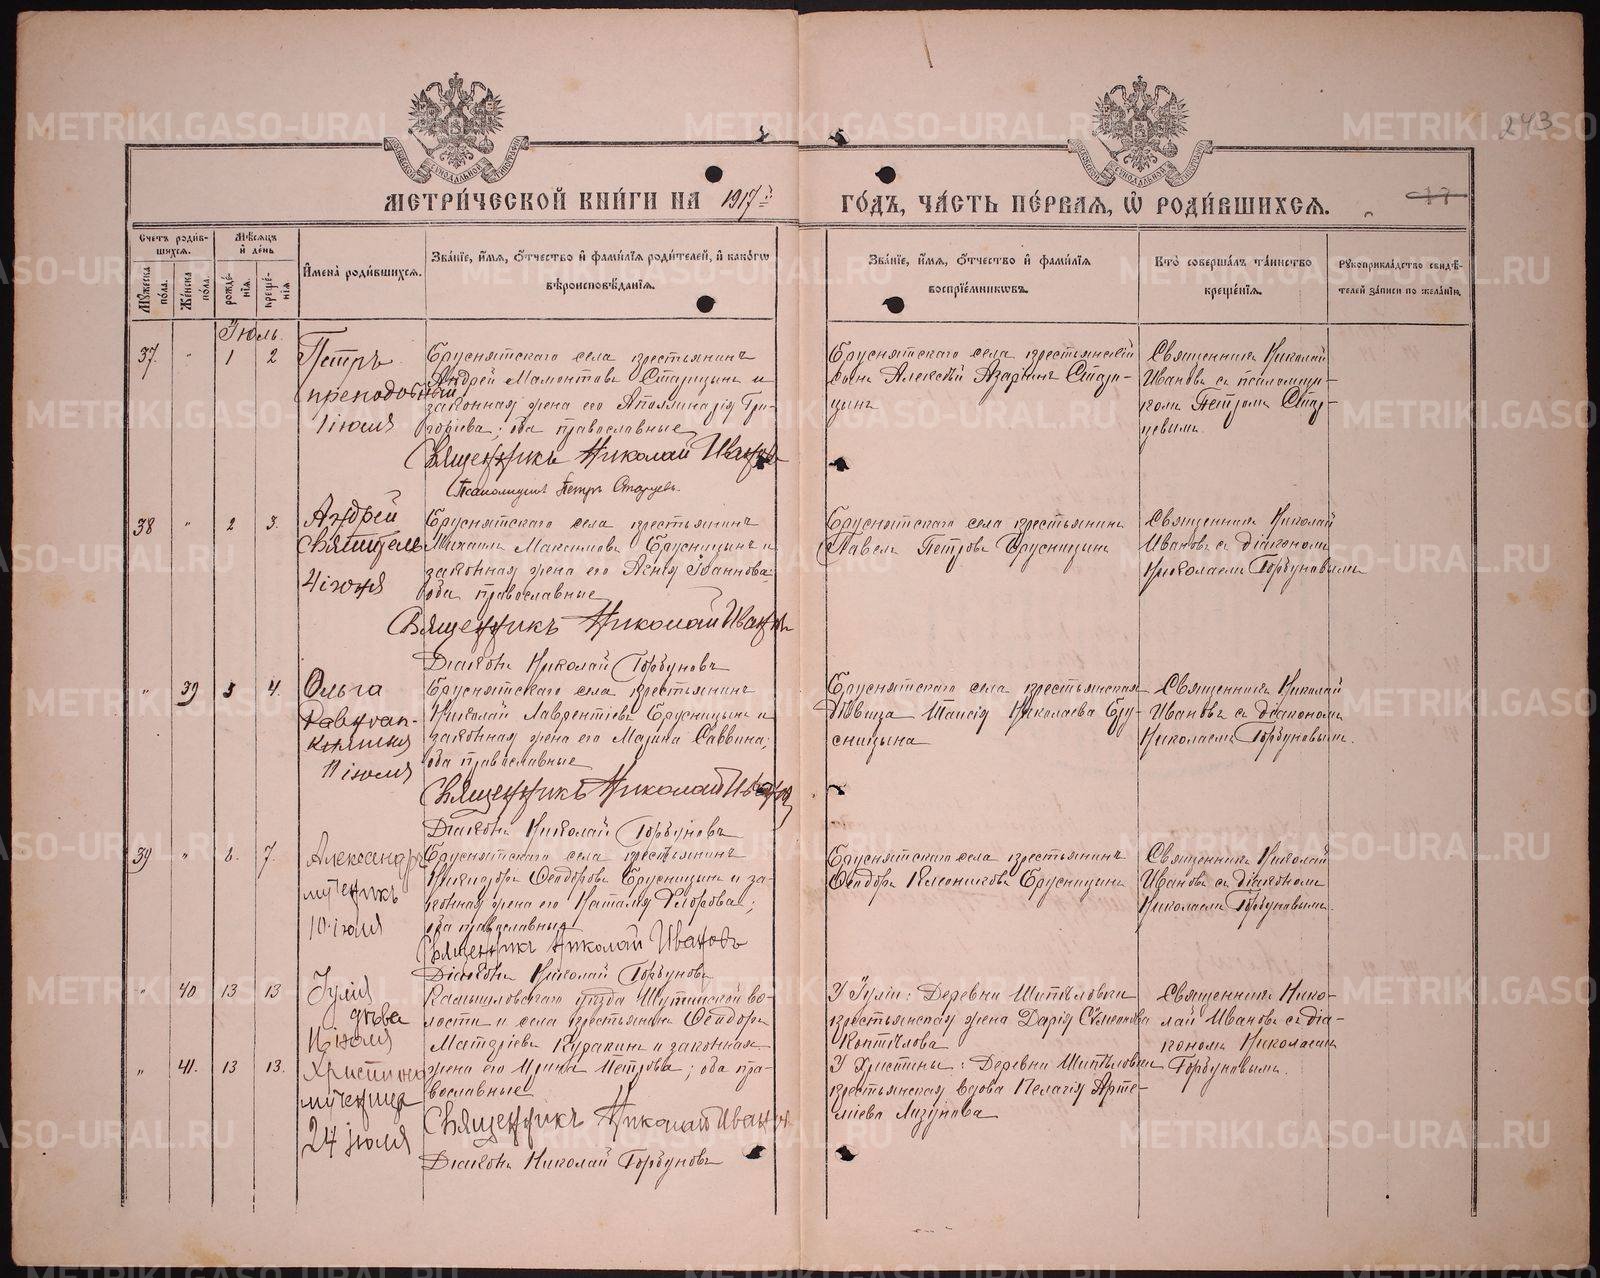 243
17
МЕТРИ́ЧЕСКОЙ КНИ́ГИ НА 1917й
ГО́ДЪ, ЧА́СТЬ ПЕ́РВАЯ, Ѿ РОДИ́ВШИХСЯ.
Счетъ роди́вшихся.
Мꙋ́жеска по́ла.
Же́нска по́ла.
Мѣ́сяцъ и́ де́нь
рожде́нїя.
креще́нїя
И́мена̀ роди́вшихся.
Зва́нїе, и́мя, о́тчество и́ фами́лїя роди́телей, и́ како́гѡ
вѣроисповѣ́данїя.
Зва́нїе, и́мя, о́тчество и́ фами́лїя
воспрїе́мникѡвъ.
Кто̀ соверша́лъ та́инство
креще́нїя.
Рꙋкоприкла́дство свидѣ́-
телей за́писи по жела́нїю.
Іюль.
37. " 1 2
Петръ
преподобный
1 июля
Бруснятскаго села крестьянинъ
Андрей Мамонтовъ Старицынъ и
законная жена его Аполлинарія Гри-
горьева; оба православные
Священникъ Николай Ивановъ
Псаломщикъ Петръ Старцевъ.
Бруснятскаго села крестьянскій
сынъ Алексѣй Азаринъ Стари-
цынъ
Священникъ Николай
Ивановъ съ псаломщи-
комъ Петромъ Стар-
цевымъ.
38 " 2 3.
Андрей
Святитель
4 июля
Бруснятскаго села крестьянинъ
Михаилъ Максимовъ Брусницынъ и
законная жена его Агнія Іоаннова;
оба православные
Священникъ Николай Ивановъ
Діаконъ Николай Горбуновъ
Бруснятскаго села крестьянинъ
Павелъ Петровъ Брусницынъ
Священникъ Николай
Ивановъ съ діакономъ
Николаемъ Горбуновымъ
" 39 3 4.
Ольга
Равноап-
княгиня
11 июля
Бруснятскаго села крестьянинъ
Николай Лаврентіевъ Брусницынъ и
законная жена его Марина Саввина;
оба православные
Священникъ Николай Ивановъ
Діаконъ Николай Горбуновъ
Бруснятскаго села крестьянская
дѣвица Таисія Николаева Бру-
сницына
Священникъ Николай
Ивановъ съ діакономъ
Николаемъ Горбуновымъ.
39 " 6. 7.
Александръ
мученикъ
10 июля
Бруснятскаго села крестьянинъ
Никифоръ Ѳеодоровъ Брусницынъ и за-
конная жена его Наталія Флорова;
оба православные
Священникъ Николай Ивановъ
Діаконъ Николай Горбуновъ
Бруснятскаго села крестьянинъ
Ѳеодоръ Брусницынъ
Священникъ Николай
Ивановъ съ діакономъ
Николаемъ Горбуновымъ.
" 40 13 13
Іулія
дѣва
июля
" 41. 13 13.
Христина
мученица
24 июля
Камышловскаго уѣзда во-
лости и села крестьянинъ Ѳеодоръ
Матѳіевъ Куракинъ и законная
жена его Ирина Петрова; оба пра-
вославные
Священникъ Николай Ивановъ
Діаконъ Николай Горбуновъ
У Іуліи: Деревни Шипѣловки
крестьянская жена Дарія Сѵмеонова
Коптѣлова
У Христины: Деревни Шипѣловки
крестьянская вдова Пелагія Арте-
міева Лизунова
Священникъ Нико-
лай Ивановъ съ діа-
кономъ Николаемъ
Горбуновымъ.
METRIKI.GASO-URAL.RU